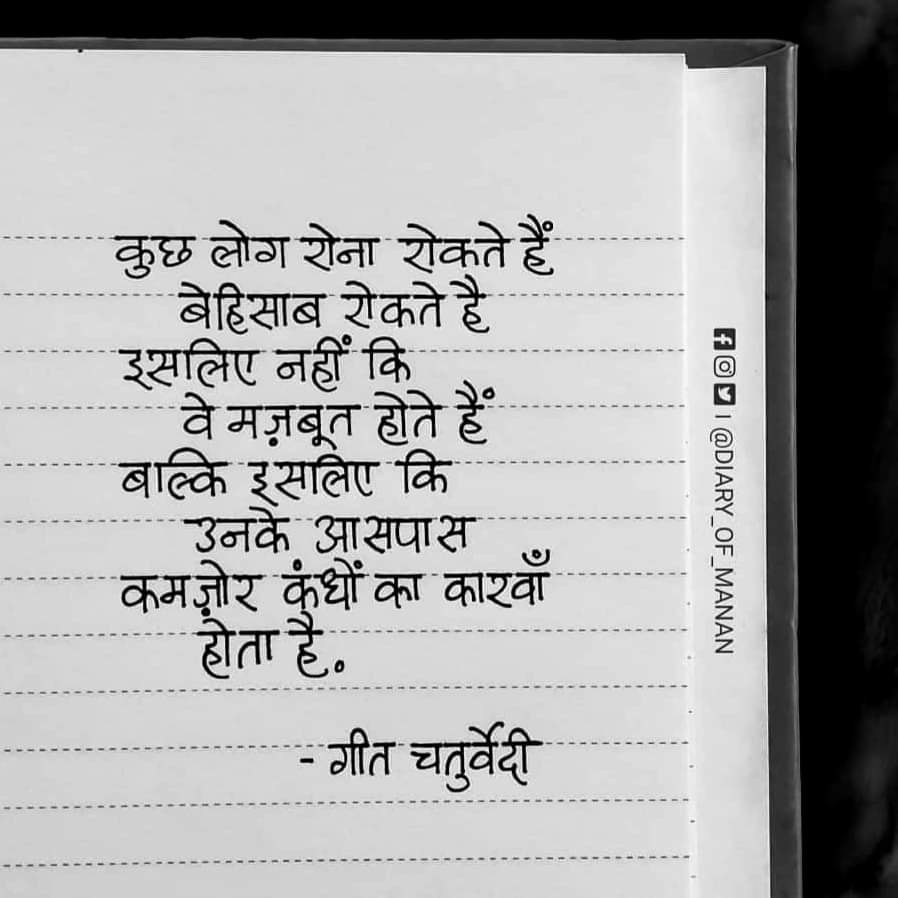 कुछ लोग रोना रोकते हैं
बेहिसाब रोकते है
इसलिए नहीं कि
वे मज़बूत होते हैं
बल्कि इसलिए कि
उनके आसपास
कमज़ोर कंधों का कारवाँ
होता है.
- गीत चतुर्वेदी
| @DIARY_OF_MANAN